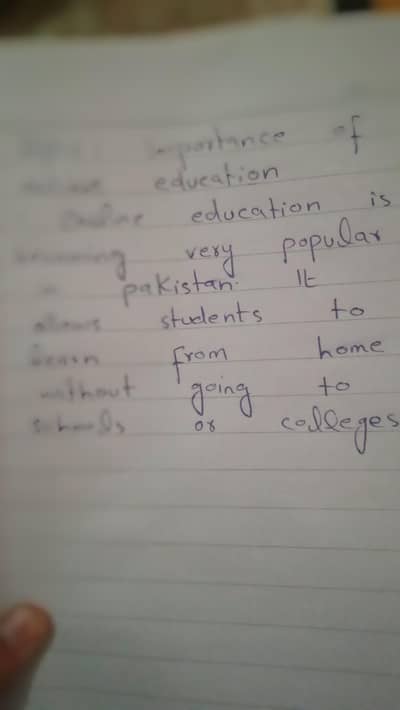 Topic: importance of
online education
Online education is
becoming very popular
in pakistan. It
allows students to
learn from home
without going to
schools or colleges